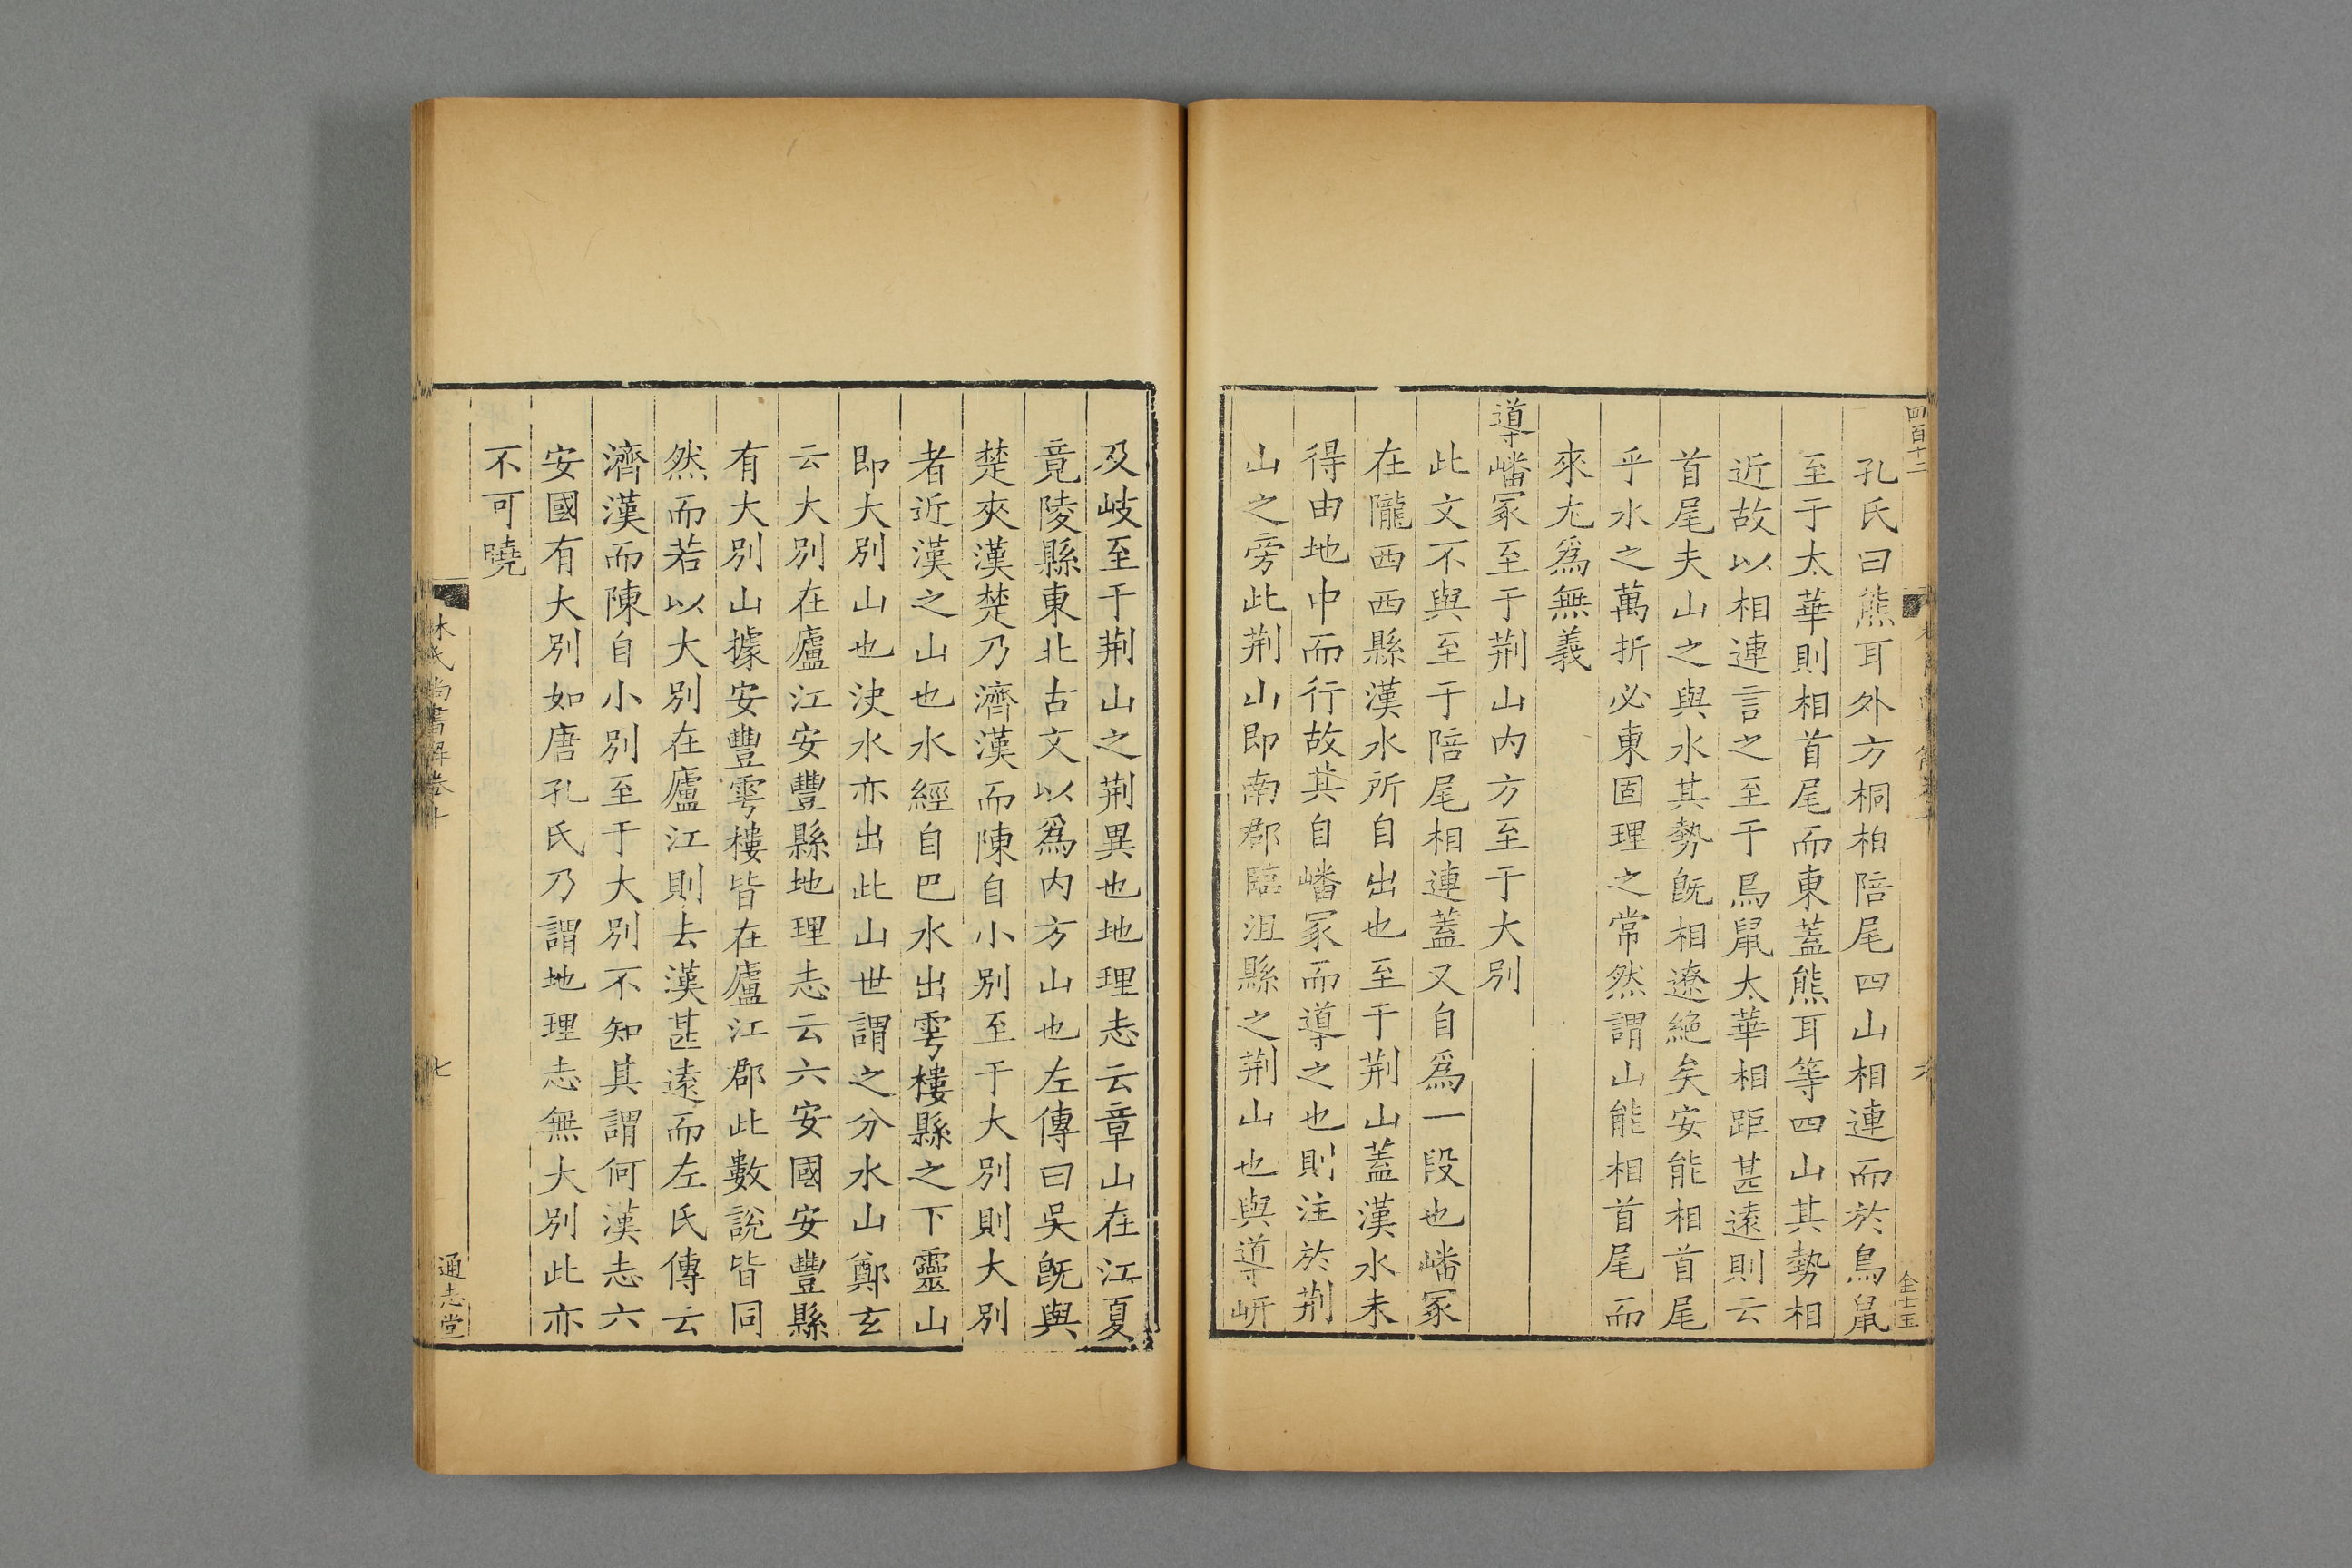 四百十二
孔氏曰熊耳外方桐柏陪尾四山相連而於鳥鼠
至于太華則相首尾而東蓋熊耳等四山其勢相
近故以相連言之至于鳥鼠太華相距甚遠則云
首尾夫山之與水其勢旣相遼絶矣安能相首尾
乎水之萬折必東固理之常然謂山能相首尾而
來尤爲無義
導嶓冢至于荆山内方至于大别
此文不與至于陪尾相連蓋又自爲一段也嶓冢
在隴西西縣漢水所自出也至于荆山蓋漢水未
得由地中而行故其自嶓冢而導之也則注於荆
山之旁此荆山即南郡臨沮縣之荆山也與導岍
及岐至于荆山之荆異也地理志云章山在江夏
竟陵縣東北古文以爲内方山也左傳曰吳旣與
楚夾漢楚乃濟漢而陳自小别至于大别則大别
者近漢之山也水經自巴水出雩樓縣之下靈山
即大别山也決水亦出此山世謂之分水山鄭玄
云大别在廬江安豐縣地理志云六安國安豐縣
有大别山據安豐雩樓皆在廬江郡此數說皆同
然而若以大别在廬江則去漢甚遠而左氏傳云
濟漢而陳自小别至于大别不知其謂何漢志六
安國有大别如唐孔氏乃謂地理志無大别此亦
不可曉
林氏尚書解卷十
七
通志堂